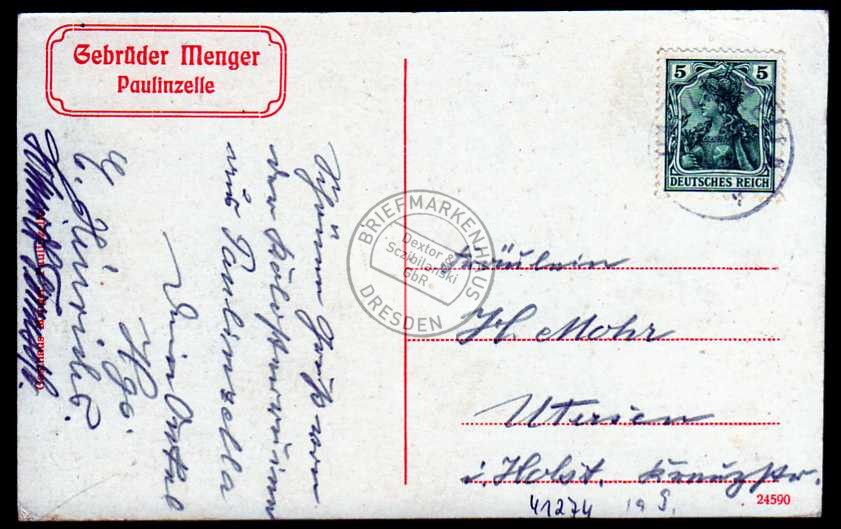 Gebrüder Menger
Paulinzelle
5 5
DEUTSCHES REICH
BRIEFMARKENHAUS
Dextor &
Sczibilanski
GbR
DRESDEN
Schönen Gruß von
der Klosterruine
aus Paulinzella
Dein Onkel
E. Hinrichs.
Fräulein
H. Mohr
Utersen
i. Holst. Kreuzstr.
41274
24590